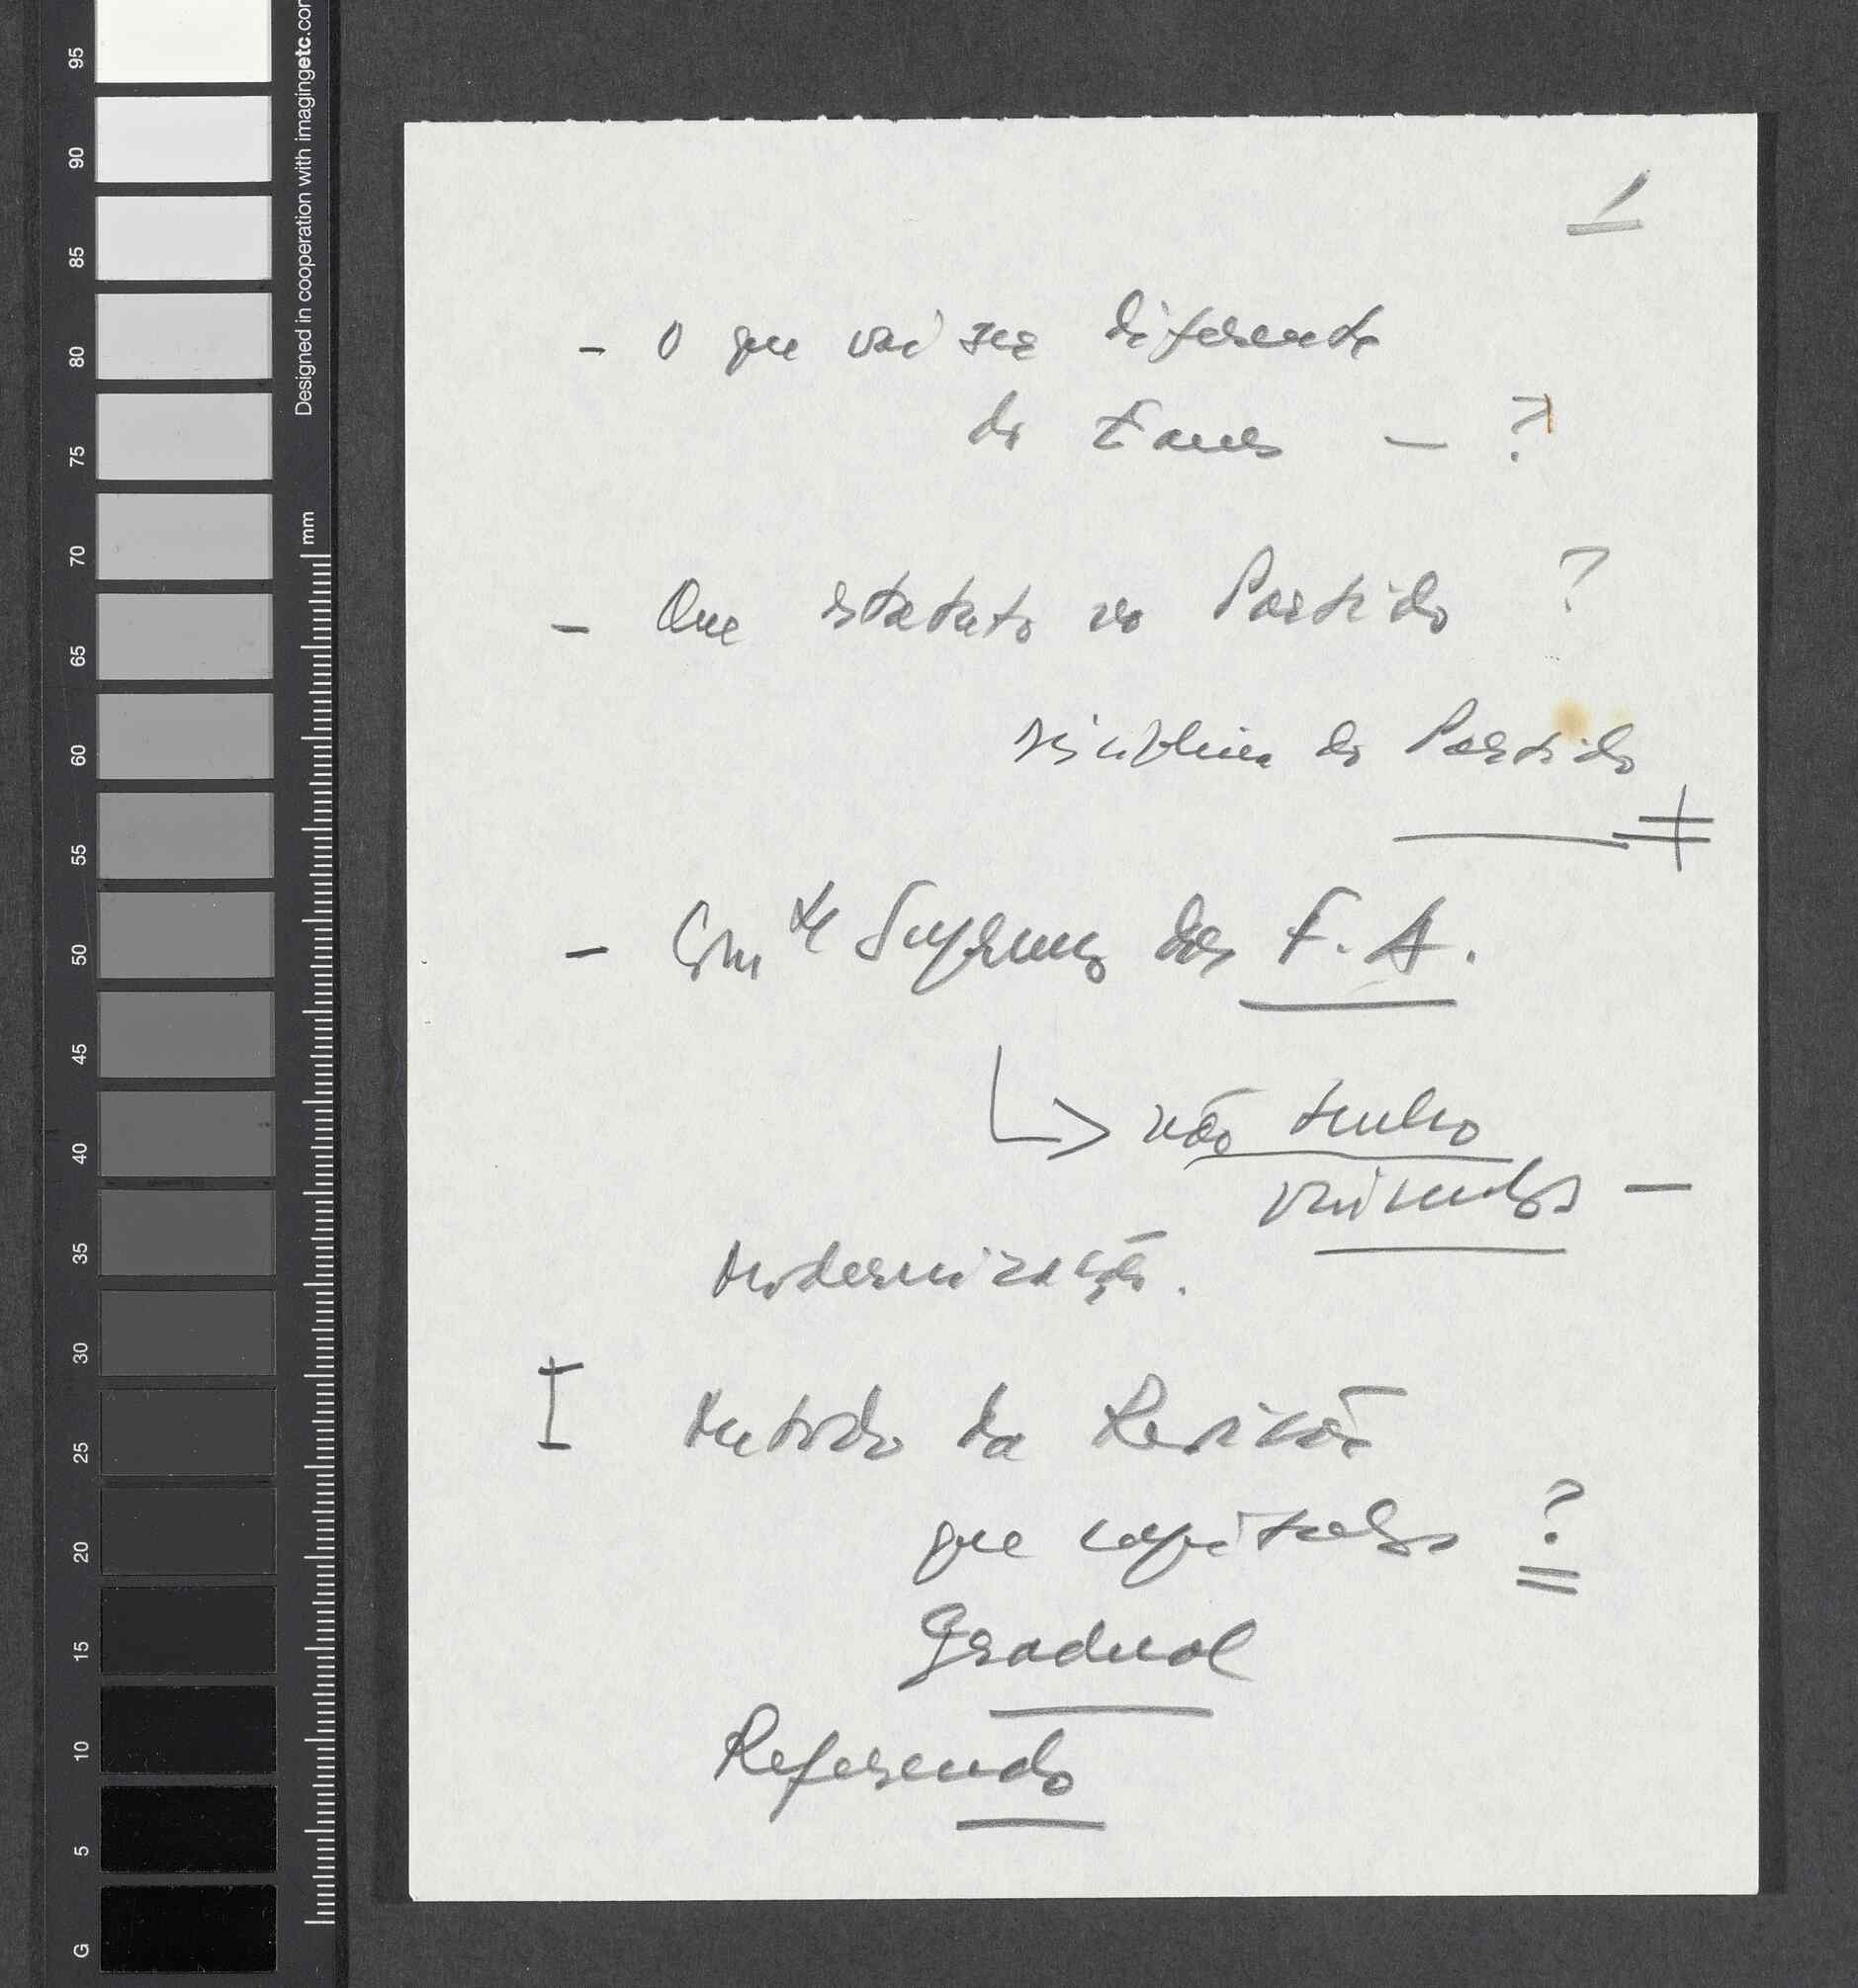 1
- O que vai ser diferente
do Eanes - ?
- Que estatuto no Partido ?
disciplina do Partido
- Com te Supremo das F. A.
não tenho
vínculos -
Modernização.
I Método da Revisão
que capítulos ?
Gradual
Referendo
Designed in cooperation with imagingetc.com
mm
95
90
85
80
75
70
65
60
55
50
45
40
35
30
25
20
15
10
5
G